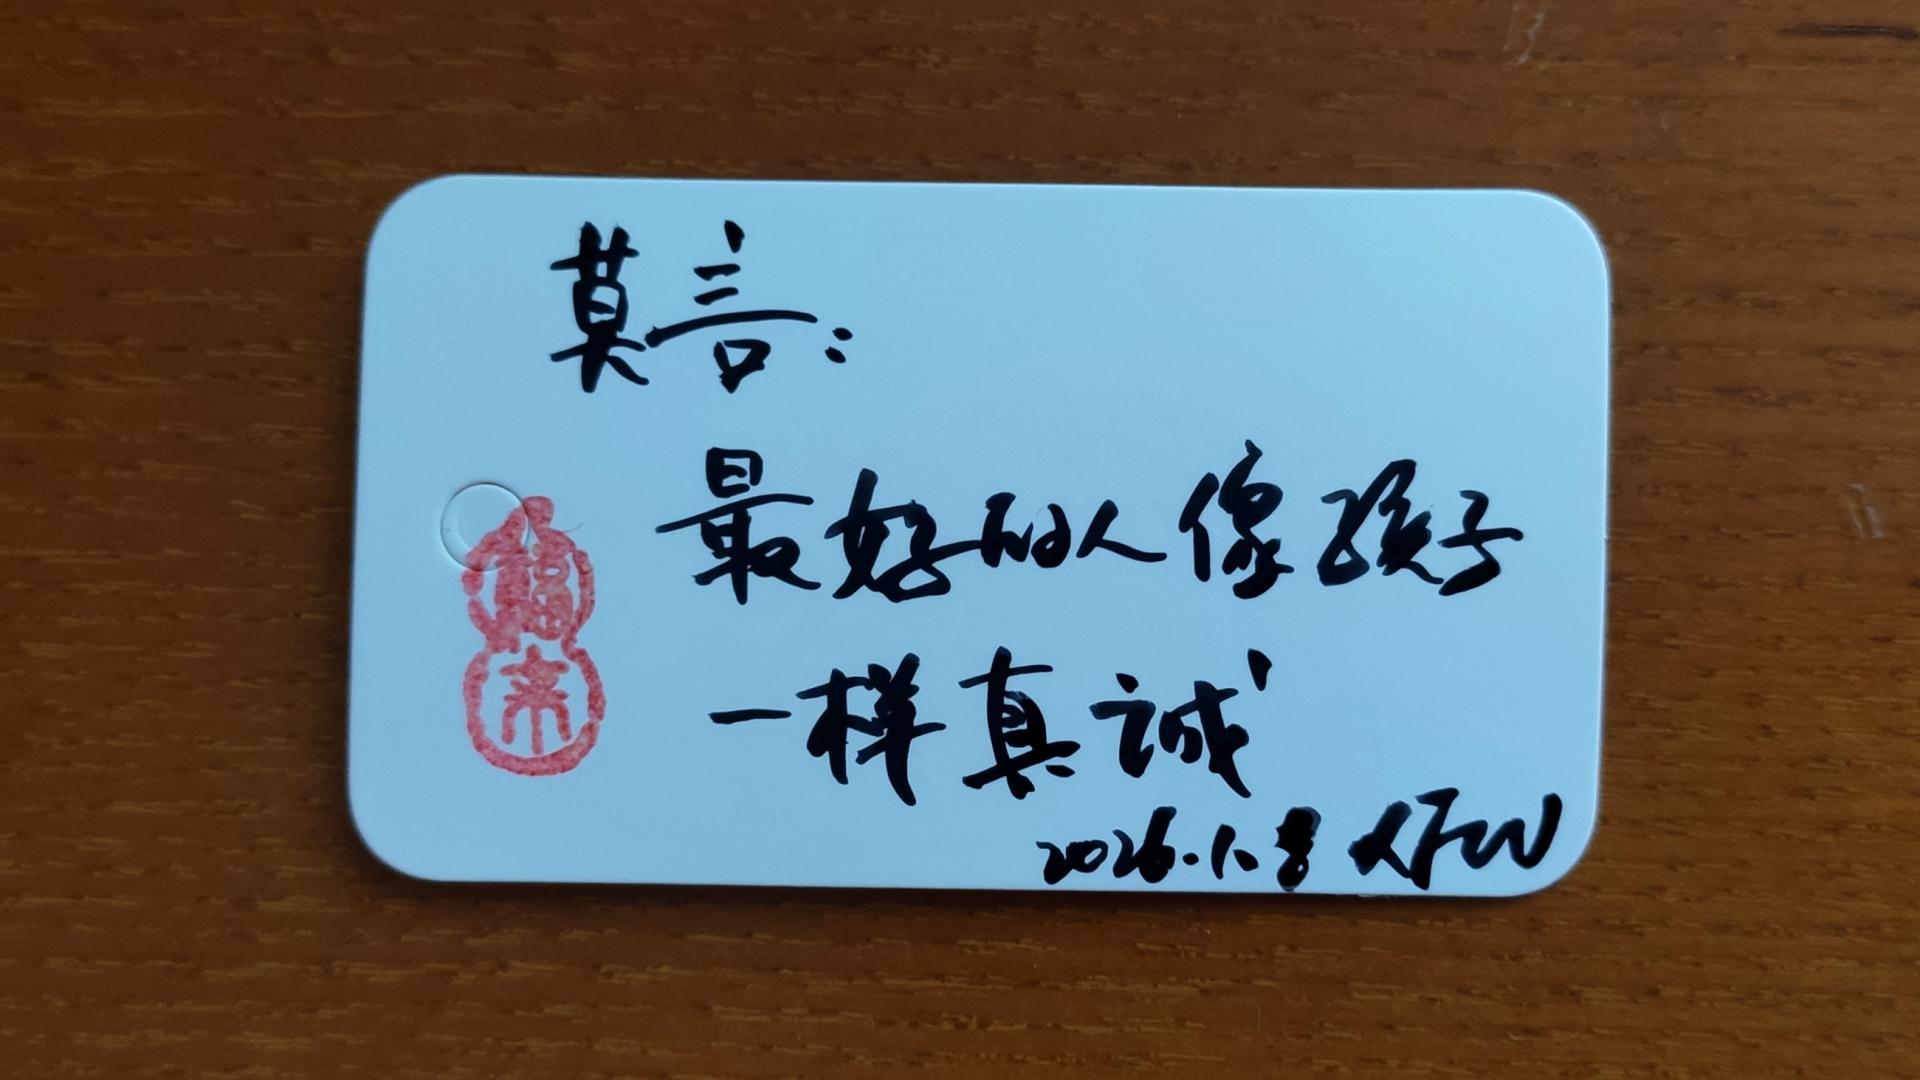 莫言：
最好的人像孩子
一样真诚
2026.1.8
福
来